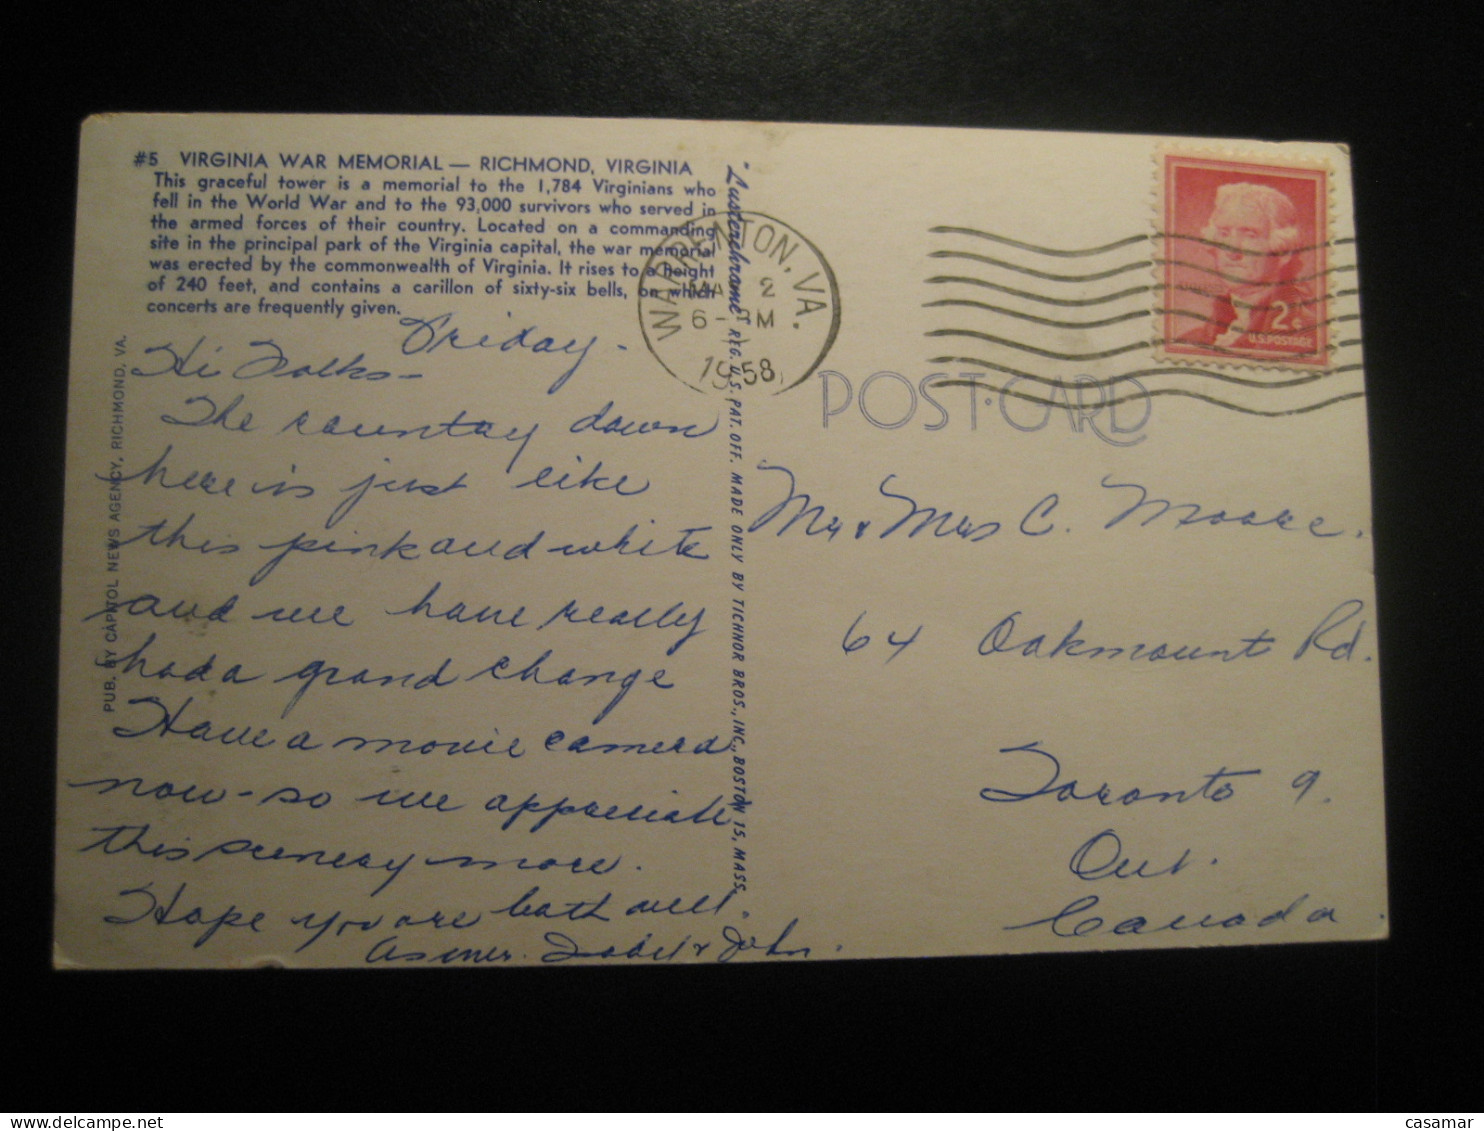 #5 VIRGINIA WAR MEMORIAL — RICHMOND, VIRGINIA
This graceful tower is a memorial to the 1,784 Virginians who
fell in the World War and to the 93,000 survivors who served in
the armed forces of their country. Located on a commanding
site in the principal park of the Virginia capital, the war memorial
was erected by the commonwealth of Virginia. It rises to a height
of 240 feet, and contains a carillon of sixty-six bells, on which
concerts are frequently given.
Friday -
Hi Folks -
The country down
here is just like
this pink and white
and we have really
had a grand change
Have a movie camera
now - so we appreciate
this scenery more.
Hope you are both well.
as ever. Isabel & John.
PUB. BY CAPITOL NEWS AGENCY, RICHMOND, VA.
"Lusterchrome" REG. U.S. PAT. OFF. MADE ONLY BY TICHNOR BROS., INC., BOSTON 15, MASS.
WARRENTON, VA.
2
6-
1958
2¢
U.S. POSTAGE
POST·CARD
Mr & Mrs C. Moore.
64 Oakmount Rd.
Toronto 9.
Ont.
Canada.
delcampe.net
casamar